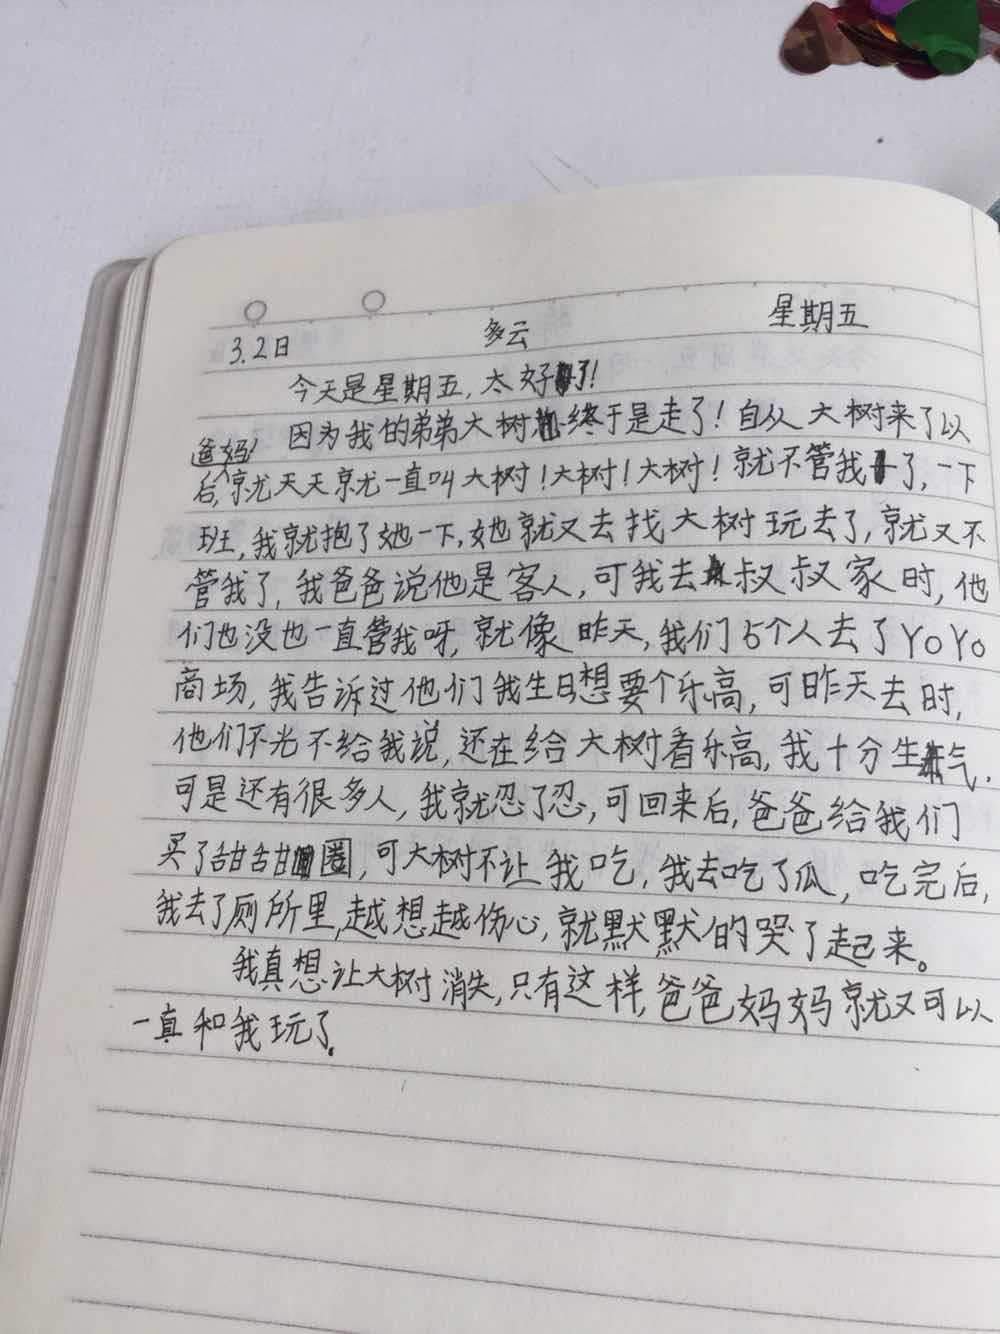 3.2日 多云 星期五
今天是星期五,太好了!
因为我的弟弟大树终于是走了!自从大树来了以
爸妈
后,就天天就一直叫大树!大树!大树!就不管我了,一下
班,我就抱了她一下,她就又去找大树玩去了,就又不
管我了,我爸爸说他是客人,可我去叔叔家时,他
们也没也一直管我呀,就像昨天,我们5个人去了YOYO
商场,我告诉过他们我生日想要个乐高,可昨天去时,
他们不光不给我说,还在给大树看乐高,我十分生气.
可是还有很多人,我就忍了忍,可回来后,爸爸给我们
买了甜甜圈,可大树不让我吃,我去吃了瓜,吃完后,
我去了厕所里,越想越伤心,就默默的哭了起来。
我真想让大树消失,只有这样,爸爸妈妈就又可以
一真和我玩了.